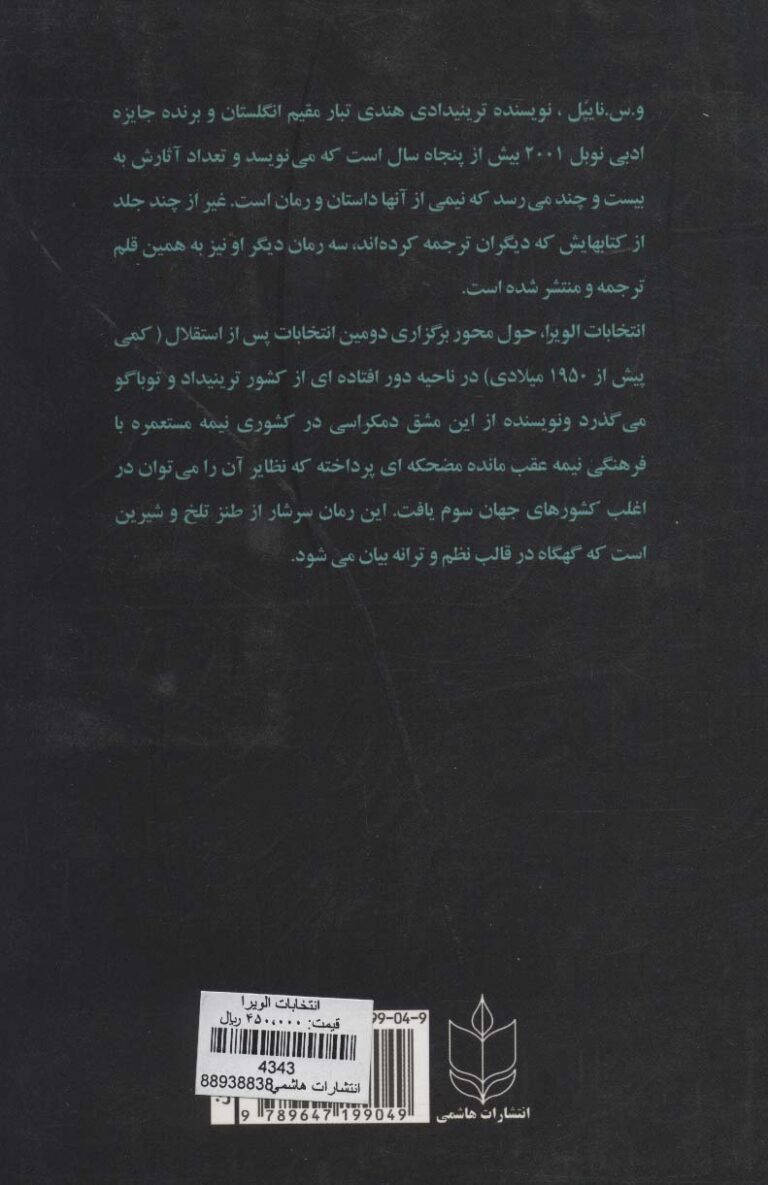 و.س.نایپل ، نویسنده ترینیدادی هندی تبار مقیم انگلستان و برنده جایزه
ادبی نوبل ۲۰۰۱ بیش از پنجاه سال است که می نویسد و تعداد آثارش به
بیست و چند می رسد که نیمی از آنها داستان و رمان است. غیر از چند جلد
از کتابهایش که دیگران ترجمه کرده‌اند، سه رمان دیگر او نیز به همین قلم
ترجمه و منتشر شده است.
انتخابات الویرا، حول محور برگزاری دومین انتخابات پس از استقلال ( کمی
پیش از ۱۹۵۰ میلادی) در ناحیه دور افتاده ای از کشور ترینیداد و توباگو
می گذرد ونویسنده از این مشق دمکراسی در کشوری نیمه مستعمره با
فرهنگی نیمه عقب مانده مضحکه ای پرداخته که نظایر آن را می توان در
اغلب کشورهای جهان سوم یافت. این رمان سرشار از طنز تلخ و شیرین
است که گهگاه در قالب نظم و ترانه بیان می شود.
انتخابات الویرا
قیمت: ۴۵۰,۰۰۰ ریال
4343
انتشارات هاشمی88938838
99-04-9
9 789647 199049
انتشارات هاشمی